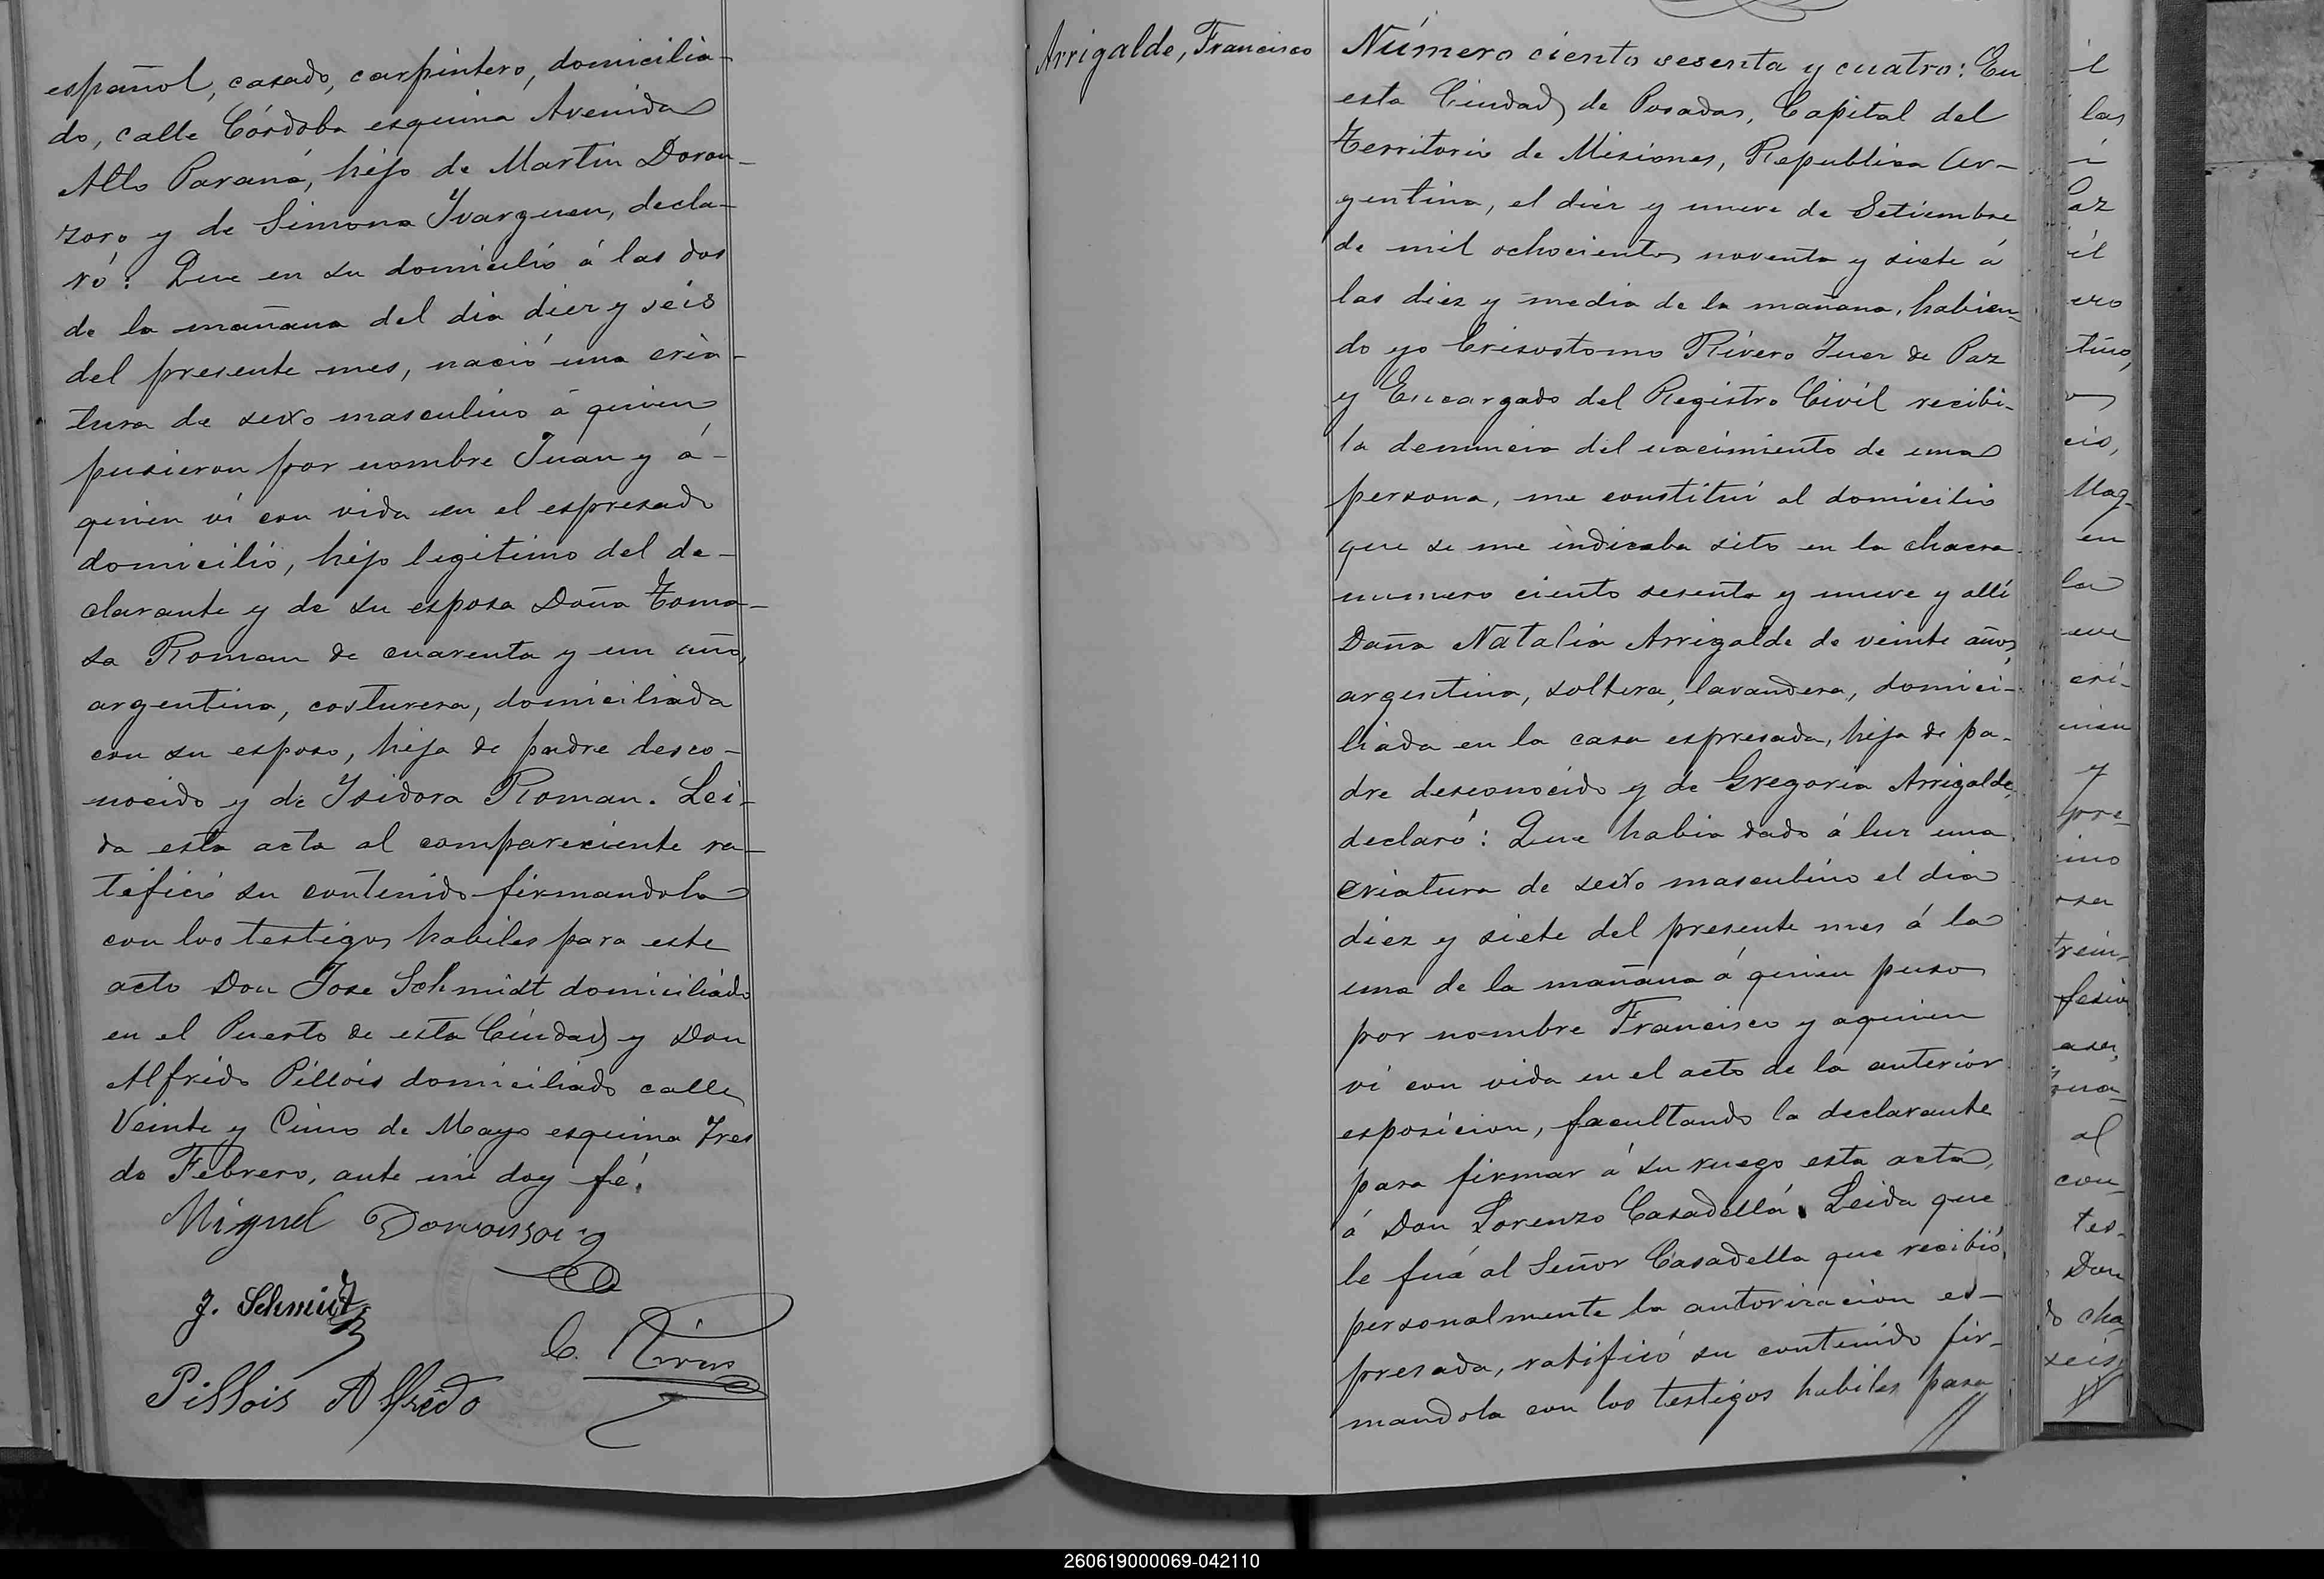 español, casado, carpintero, domicilia-
do, calle Córdoba esquina Avenida
Alto Paraná, hijo de Martin Doron-
zoro y de Simona Yvarguen, decla-
ró: Que en su domicilio á las dos
de la mañana del dia diez y seis
del presente mes, nació una cria-
tura de sexo masculino á quien
pusieron por nombre Juan y á-
quien ví con vida en el espresado
domicilio, hijo legitimo del de-
clarante y de su esposa Doña Toma-
sa Roman de cuarenta y un años,
argentina, costurera, domiciliada
con su esposo, hija de padre desco-
nocido y de Ysidora Roman. Lei-
da esta acta al compareciente ra-
tificó su contenido firmandola
con los testigos habiles para este
acto Don Jose Schmidt domiciliado
en el Puerto de esta Ciudad y Don
Alfrédo Pillois domiciliado calle
Veinte y Cinco de Mayo esquina Tres
de Febrero, ante mi doy fé.
Miguel
J. Schmidt
C. Rivero
Pillois Alfrédo
Arrigalde, Francisco
Número ciento sesenta y cuatro: En
esta Ciudad de Posadas, Capital del
Territorio de Misiones, Republica Ar-
gentina, el diez y nueve de Setiembre
de mil ochocientos noventa y siete á
las diez y media de la mañana, habien-
do yo Crisostomo Rivero Juez de Paz
y Encargado del Registro Civil recibi-
la denuncia del nacimiento de una
persona, me constituí al domicilio
que se me indicaba sito en la chacra
numero ciento sesenta y nueve y allí
Doña Natalia Arrigalde de veinte años,
argentina, soltera, lavandera, domici-
liada en la casa espresada, hija de pa-
dre desconocido y de Gregoria Arrigalde,
declaró: Que habia dado á luz una
criatura de sexo masculino el dia
diez y siete del presente mes á la
una de la mañana á quien puso
por nombre Francisco y aquien
ví con vida en el acto de la anterior
esposicion, facultando la declarante
para firmar á su ruego esta acta,
á Don Lorenzo Casadellá. Leida que
le fué al Señor Casadella que recibió
personalmente la autorizacion es-
presada, ratificó su contenido fir-
mandola con los testigos habiles para
il
las
i
Paz
il
ero
cio,
Mag-
en
la
eve
cri-
y
pre-
ino
osa
trein-
al
con-
tes-
Don
do cha
seis
260619000069-042110